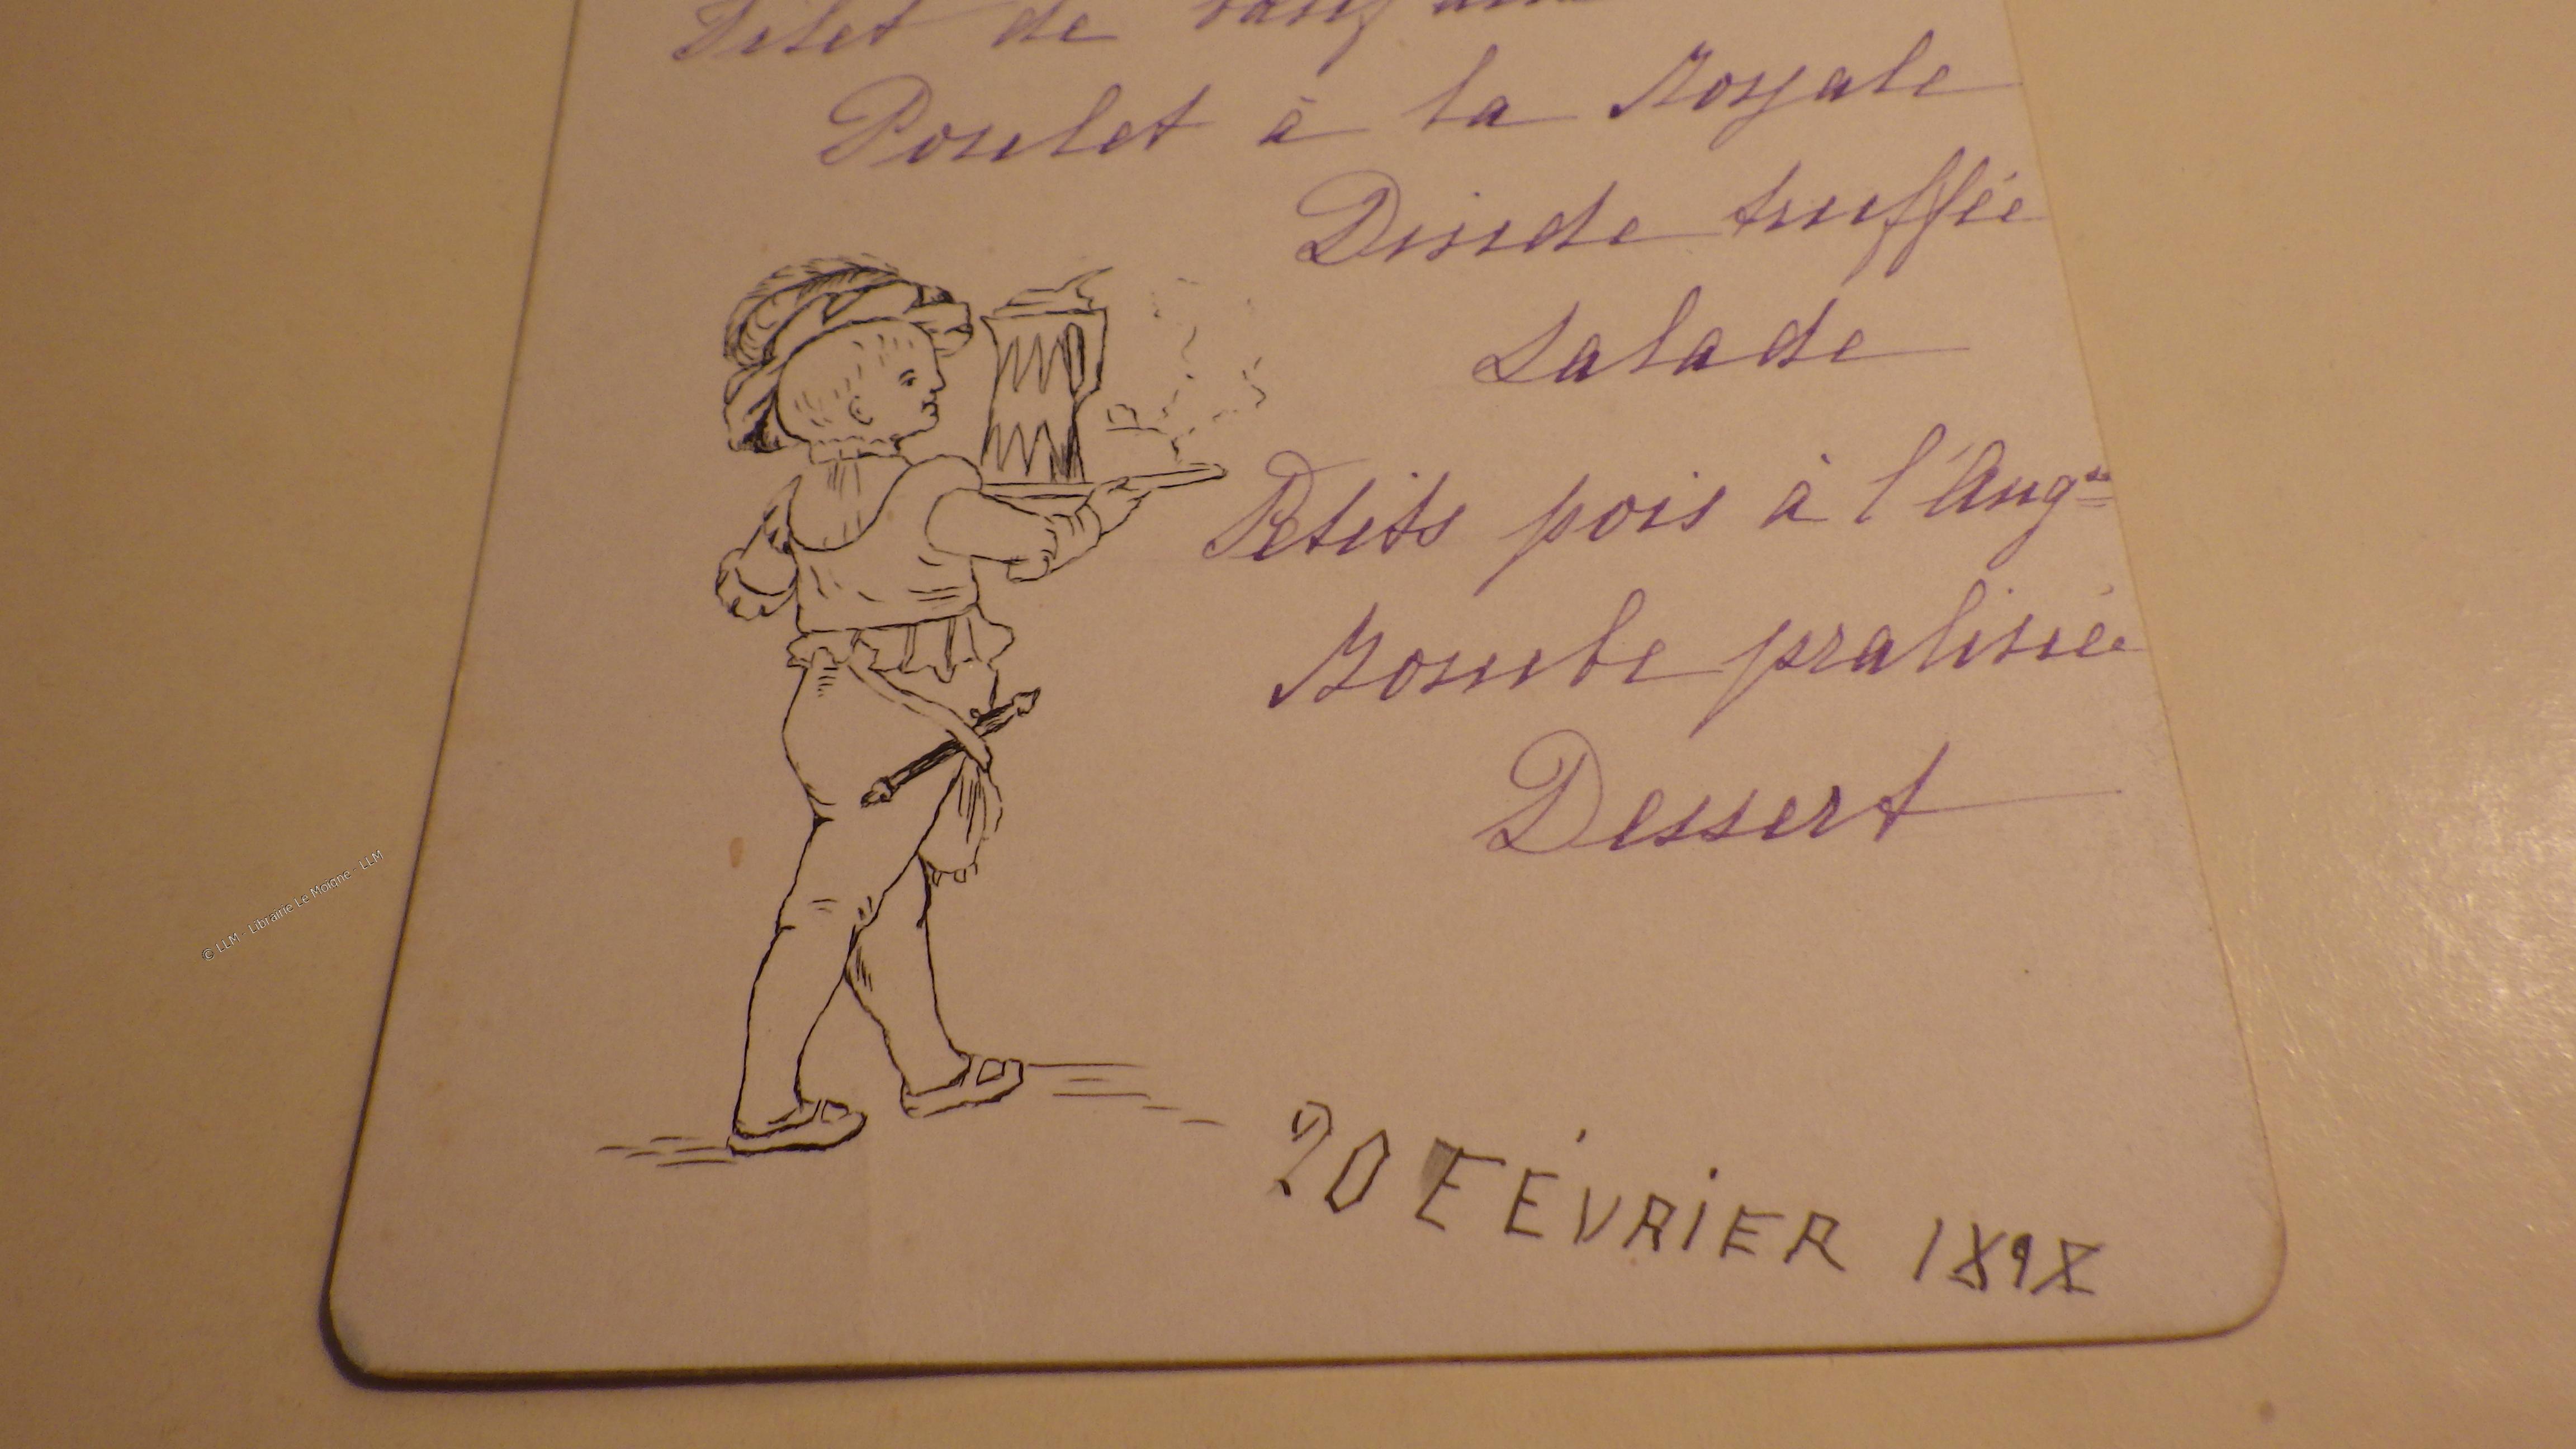 Filet de bœuf
Poulet à la Royale
Dinde truffée
Salade
Petits pois à l'Angse
Bombe pralinée
Dessert
20 FÉVRIER 1898
© LLM - Librairie Le Moigne - LLM